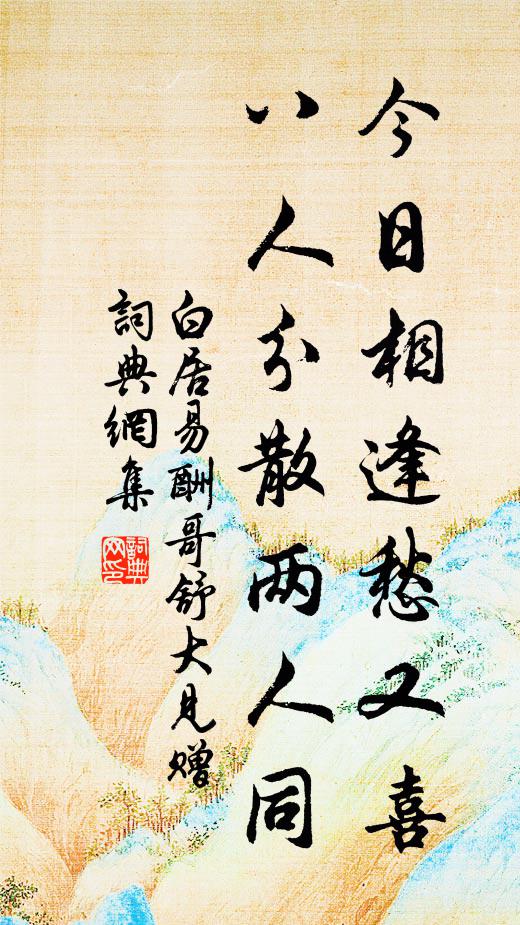 今日相逢愁又喜
八人分散两人同
白居易酬哥舒大見贈
詞典網集
詞典网印